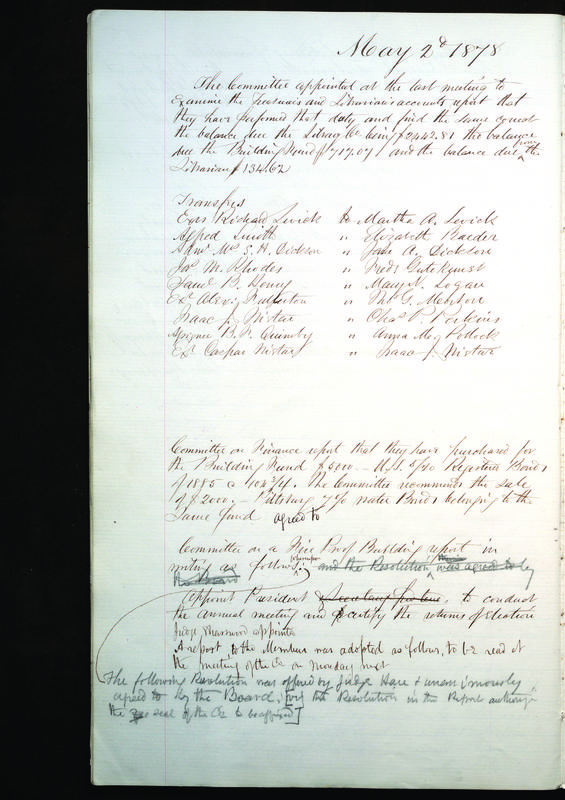 May 2d 1878
The Committee appointed at the last meeting to
Examine the Treasurers and Librarians accounts report that
they have performed that duty and find the same correct
the balance due the Library Co being $2442.81 the balance
due the Building Fund $717.07 and the balance due from the
Librarian $134.62
Transfers
Exrs Richard Levick to Martha A. Levick
Alfred Smith " Elizabeth Baeder
Admr Mrs S. H. Dickson " Jane A. Dickson
Jas M. Rhodes " Fredk Gutekunst
Saml B. Henry " Mary N. Logan
Exr Alexr Fullerton " Thos G.
Isaac J. Wistar " Chas P. Perkins
Assignee B. F. Quimby " Anna M. Pollock
Exr Caspar Wistar " Isaac J. Wistar
Committee on Finance report that they have purchased for
the Building Fund $5000 - U.S. 5/20 Registered Bonds
of 1885 @ 104 3/4. The Committee recommends the sale
of $2000. - Pittsburg 7 % Water Bonds belonging to the
same fund agreed to
Committee on a Fire Proof Building report in
writing as follows: and the Resolution was agreed to by
the Board
Appoint President & Secretary pro tem, to conduct
the annual meeting and certify the returns of Election
Judge Sharswood appointed
A report to the Members was adopted as follows, to be read at
the meeting of the Co on Monday next
The following Resolution was offered by Judge Hare & unanimously
agreed to by the Board; [viz the Resolution in the Report authorizg
the seal of the Co to be affixed]